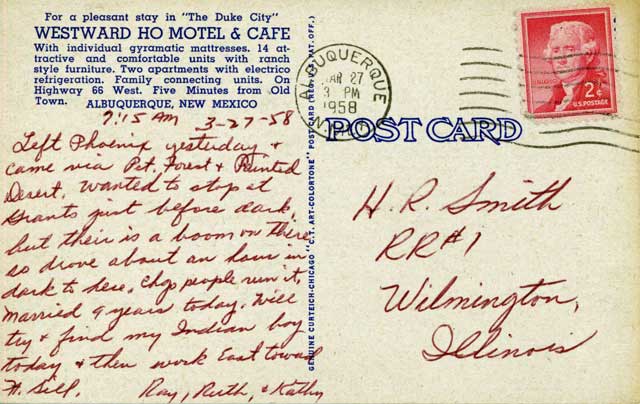 For a pleasant stay in "The Duke City"
WESTWARD HO MOTEL & CAFE
With individual gyramatic mattresses. 14 at-
tractive and comfortable units with ranch
style furniture. Two apartments with electrico
refrigeration. Family connecting units. On
Highway 66 West. Five Minutes from Old
Town. ALBUQUERQUE, NEW MEXICO
7:15 AM 3-27-58
Left Phoenix yesterday +
came via Pet. Forest & Painted
Desert. Wanted to stop at
Grants just before dark,
but their is a boom on there
so drove about an hour in
dark to here. Chip people run it,
Married 9 years today. Will
try + find my Indian boy
today + then work East toward
Ft. Sill. Ray, Ruth, & Kathy
GENUINE CURTEICH-CHICAGO "C.T. ART-COLORTONE" POST CARD (REG. U.S. PAT. OFF.)
ALBUQUERQUE
MAR 27
3 PM
1958
N. MEX.
2¢
U.S. POSTAGE
POST CARD
H. R. Smith
RR#1
Wilmington,
Illinois